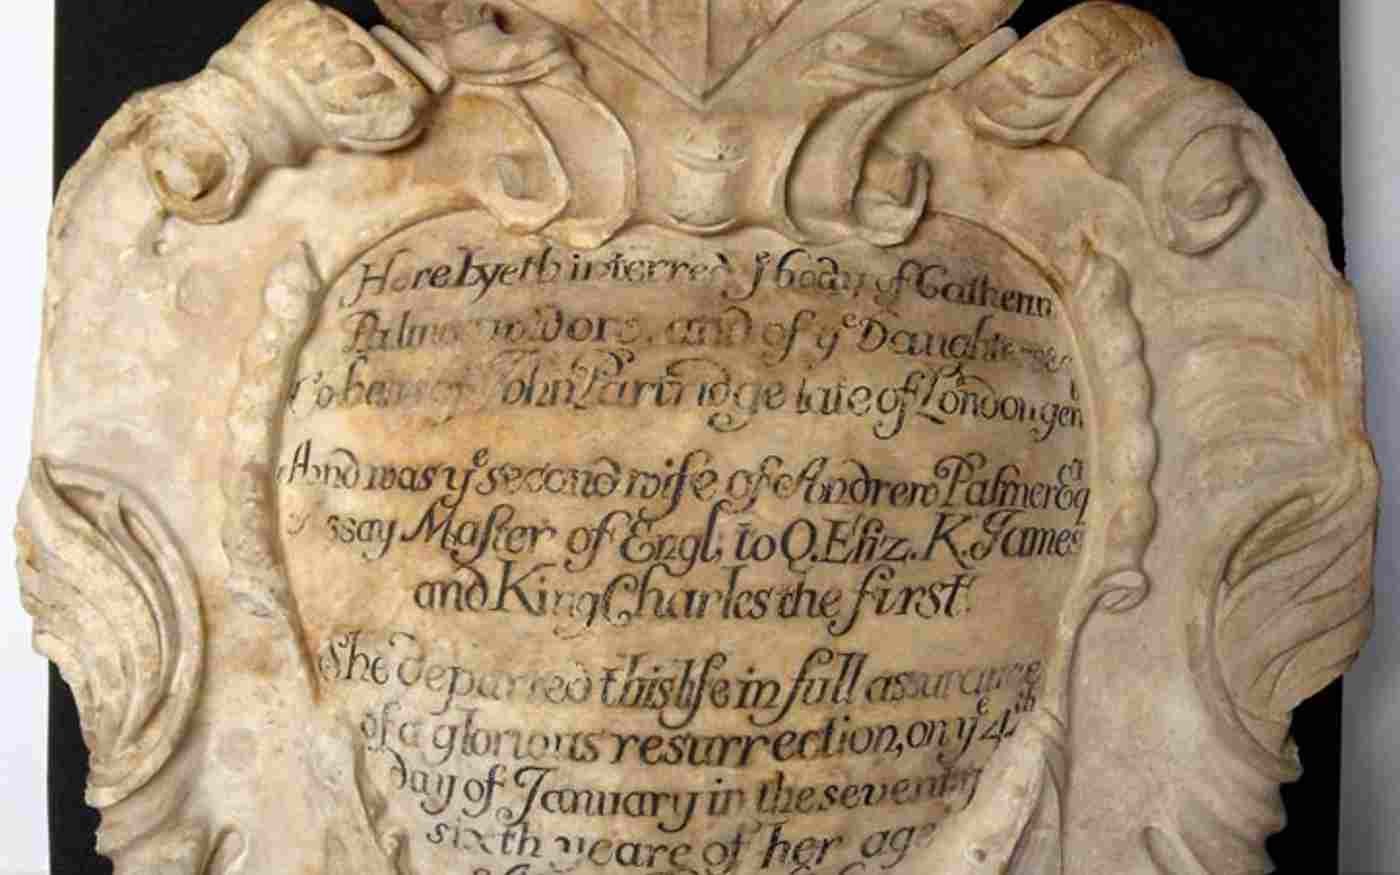 Here lyeth interred yᵉ body of Catherin
Palmer widow, and of yᵉ Daughters
Coheirs of John Partridge late of London gen
And was yᵉ second wife of Andrew Palmer Esq
Assay Master of Engl. to Q. Eliz. K. James
and King Charles the first.
She departed this life in full assurance
of a glorious resurrection, on yᵉ 4th
day of January in the seventy
sixth yeare of her age